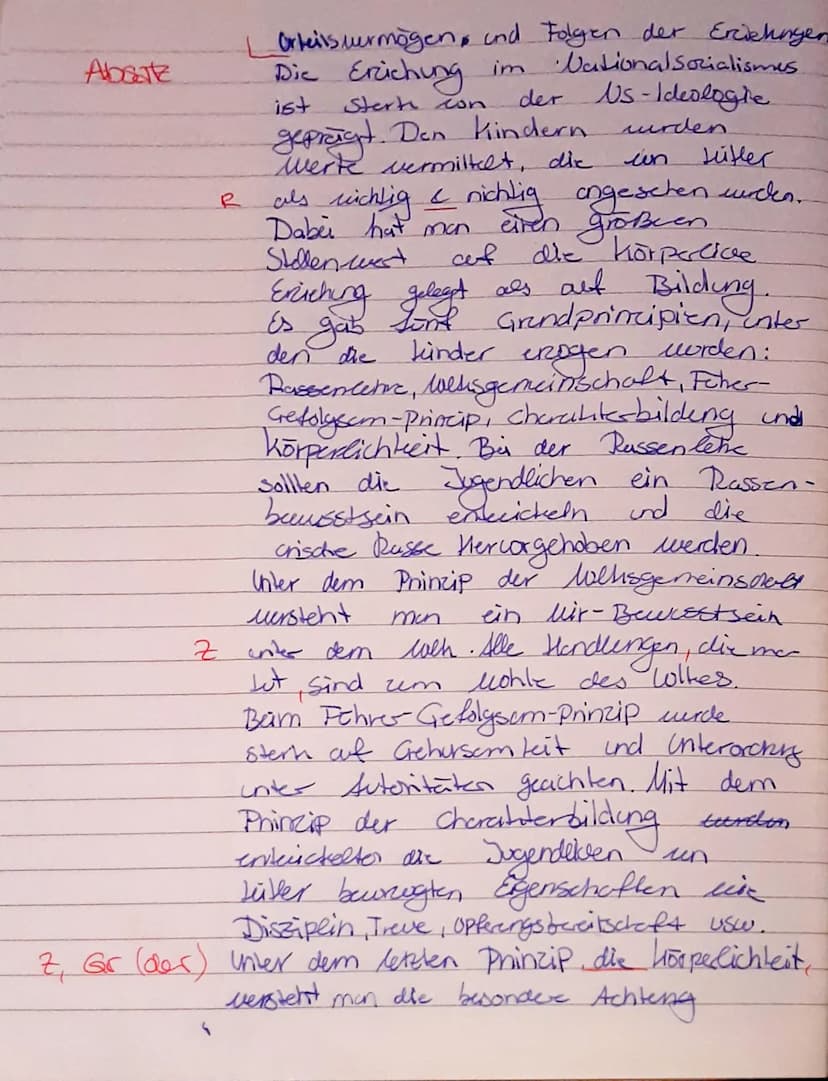 Urteilsvermögen, und Folgen der Erziehungen
Absatz Die Erziehung im Nationalsozialismus
ist stark von der NS-Ideologie
geprägt. Den Kindern wurden
Werte vermittelt, die von Hitler
R als wichtig & richtig angesehen wurden.
Dabei hat man einen großen
Stellenwert auf die körperliche
Erziehung gelegt als auf Bildung.
Es gab fünf Grundprinzipien, unter
den die Kinder erzogen worden:
Rassenlehre, Volksgemeinschaft, Führer-
Gefolgsam-Prinzip, Charakterbildung und
Körperlichkeit. Bei der Rassenlehre
sollten die Jugendlichen ein Rassen-
bewusstsein entwickeln und die
arische Rasse Hervorgehoben werden.
Unter dem Prinzip der Volksgemeinschaft
versteht man ein Wir-Bewusstsein
Z unter dem Volk. Alle Handlungen, die man
tut, sind zum Wohle des Volkes.
Beim Führer-Gefolgsam-Prinzip wurde
stark auf Gehorsamkeit und Unterordnung
unter Autoritäten geachten. Mit dem
Prinzip der Charakterbildung wurden
entwickelten die Jugendlichen von
Hitler bevorzugten Eigenschaften wie
Disziplin, Treue, Opferungsbereitschaft usw.
Z, Gr (der) Unter dem letzten Prinzip, die Körperlichkeit,
versteht man die besondere Achtung